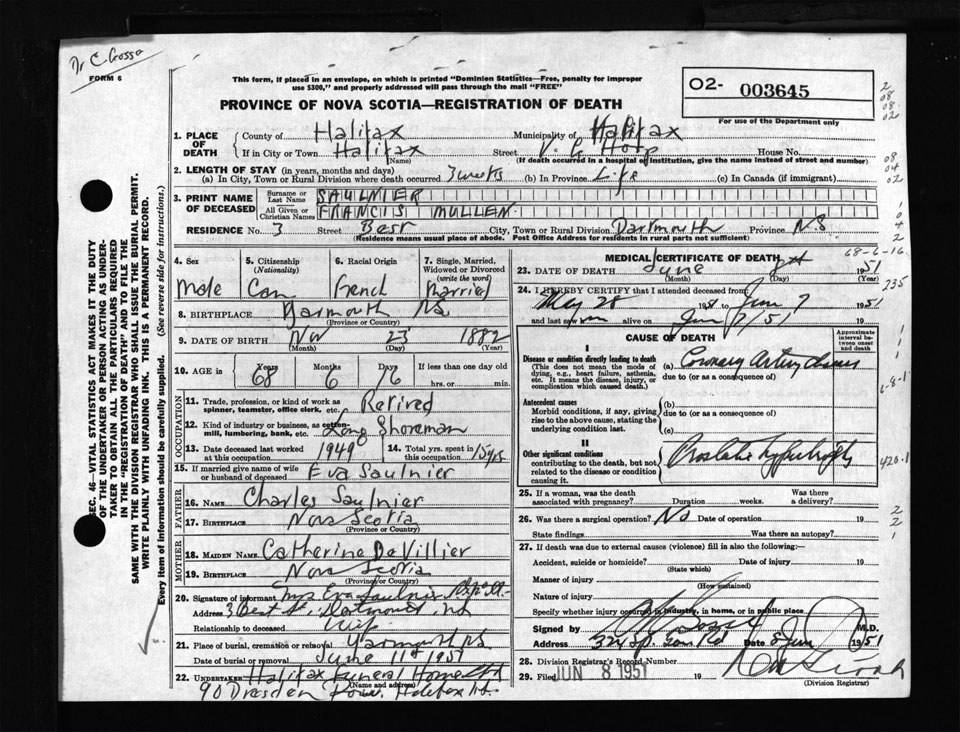 Dr C Gosse
FORM 6
This form, if placed in an envelope, on which is printed "Dominion Statistics—Free, penalty for improper
use $300," and properly addressed will pass through the mail "FREE"
PROVINCE OF NOVA SCOTIA—REGISTRATION OF DEATH
O2- 003645
For use of the Department only
SEC. 46—VITAL STATISTICS ACT MAKES IT THE DUTY
OF THE UNDERTAKER OR PERSON ACTING AS UNDER-
TAKER TO OBTAIN ALL THE PARTICULARS REQUIRED
IN THE "REGISTRATION OF DEATH" AND TO FILE THE
SAME WITH THE DIVISION REGISTRAR WHO SHALL ISSUE THE BURIAL PERMIT.
WRITE PLAINLY WITH UNFADING INK. THIS IS A PERMANENT RECORD.
Every item of information should be carefully supplied. (See reverse side for instructions.)
1. PLACE OF DEATH
County of Halifax Municipality of Halifax
If in City or Town Halifax Street V. G Hosp House No.
(Name) (If death occurred in a hospital or institution, give the name instead of street and number)
2. LENGTH OF STAY (in years, months and days)
(a) In City, Town or Rural Division where death occurred 3 weeks (b) In Province Life (c) In Canada (if immigrant)
3. PRINT NAME OF DECEASED
Surname or Last Name SAULNIER
All Given or Christian Names FRANCIS MULLEN
RESIDENCE No. 3 Street Best City, Town or Rural Division Dartmouth Province N.S
(Residence means usual place of abode. Post Office Address for residents in rural parts not sufficient)
4. Sex Male
5. Citizenship (Nationality) Can
6. Racial Origin French
7. Single, Married, Widowed or Divorced (write the word) Married
8. BIRTHPLACE Yarmouth NS
(Province or Country)
9. DATE OF BIRTH Nov 23 1882
(Month) (Day) (Year)
10. AGE in Years Months Days If less than one day old
68 6 16 hrs. or min.
OCCUPATION
11. Trade, profession, or kind of work as
spinner, teamster, office clerk, etc. Retired
12. Kind of industry or business, as cotton-
mill, lumbering, bank, etc. Long Shoreman
13. Date deceased last worked at this occupation 1949
14. Total yrs. spent in this occupation 15 yrs
15. If married give name of wife
or husband of deceased Eva Saulnier
FATHER
16. NAME Charles Saulnier
17. BIRTHPLACE Nova Scotia
(Province or Country)
MOTHER
18. MAIDEN NAME Catherine DeVillier
19. BIRTHPLACE Nova Scotia
(Province or Country)
20. Signature of informant Mrs Eva Saulnier
Address 3 Best St, Dartmouth, NS
Relationship to deceased Wife
21. Place of burial, cremation or removal Yarmouth NS
Date of burial or removal June 11th 1951
22. UNDERTAKER Halifax Funeral Home Ltd
(Name and address)
90 Dresden Row, Halifax NS.
MEDICAL CERTIFICATE OF DEATH
68-6-16
23. DATE OF DEATH June 8th 1951
(Month) (Day) (Year)
24. I HEREBY CERTIFY that I attended deceased from:
May 28 1951 to June 7 1951
and last saw him alive on June 7/51 19
CAUSE OF DEATH
Approximate interval between onset and death
I
Disease or condition directly leading to death
(This does not mean the mode of
dying, e.g., heart failure, asthenia,
etc. It means the disease, injury, or
complication which caused death.)
(a) Coronary Artery disease
due to (or as a consequence of)
Antecedent causes
Morbid conditions, if any, giving
rise to the above cause, stating the
underlying condition last.
(b)
due to (or as a consequence of)
(c)
II
Other significant conditions
contributing to the death, but not
related to the disease or condition
causing it.
Prostatic hypertrophy
420.1
25. If a woman, was the death Was there
associated with pregnancy? Duration weeks. a delivery?
26. Was there a surgical operation? No Date of operation
State findings Was there an autopsy?
27. If death was due to external causes (violence) fill in also the following:—
Accident, suicide or homicide? Date of injury 19
(State which)
Manner of injury
(How sustained)
Nature of injury
Specify whether injury occurred in industry, in home, or in public place
Signed by M.D.
Address Date 8 June 1951
28. Division Registrar's Record Number
29. Filed JUN 8 1951 19
(Division Registrar)